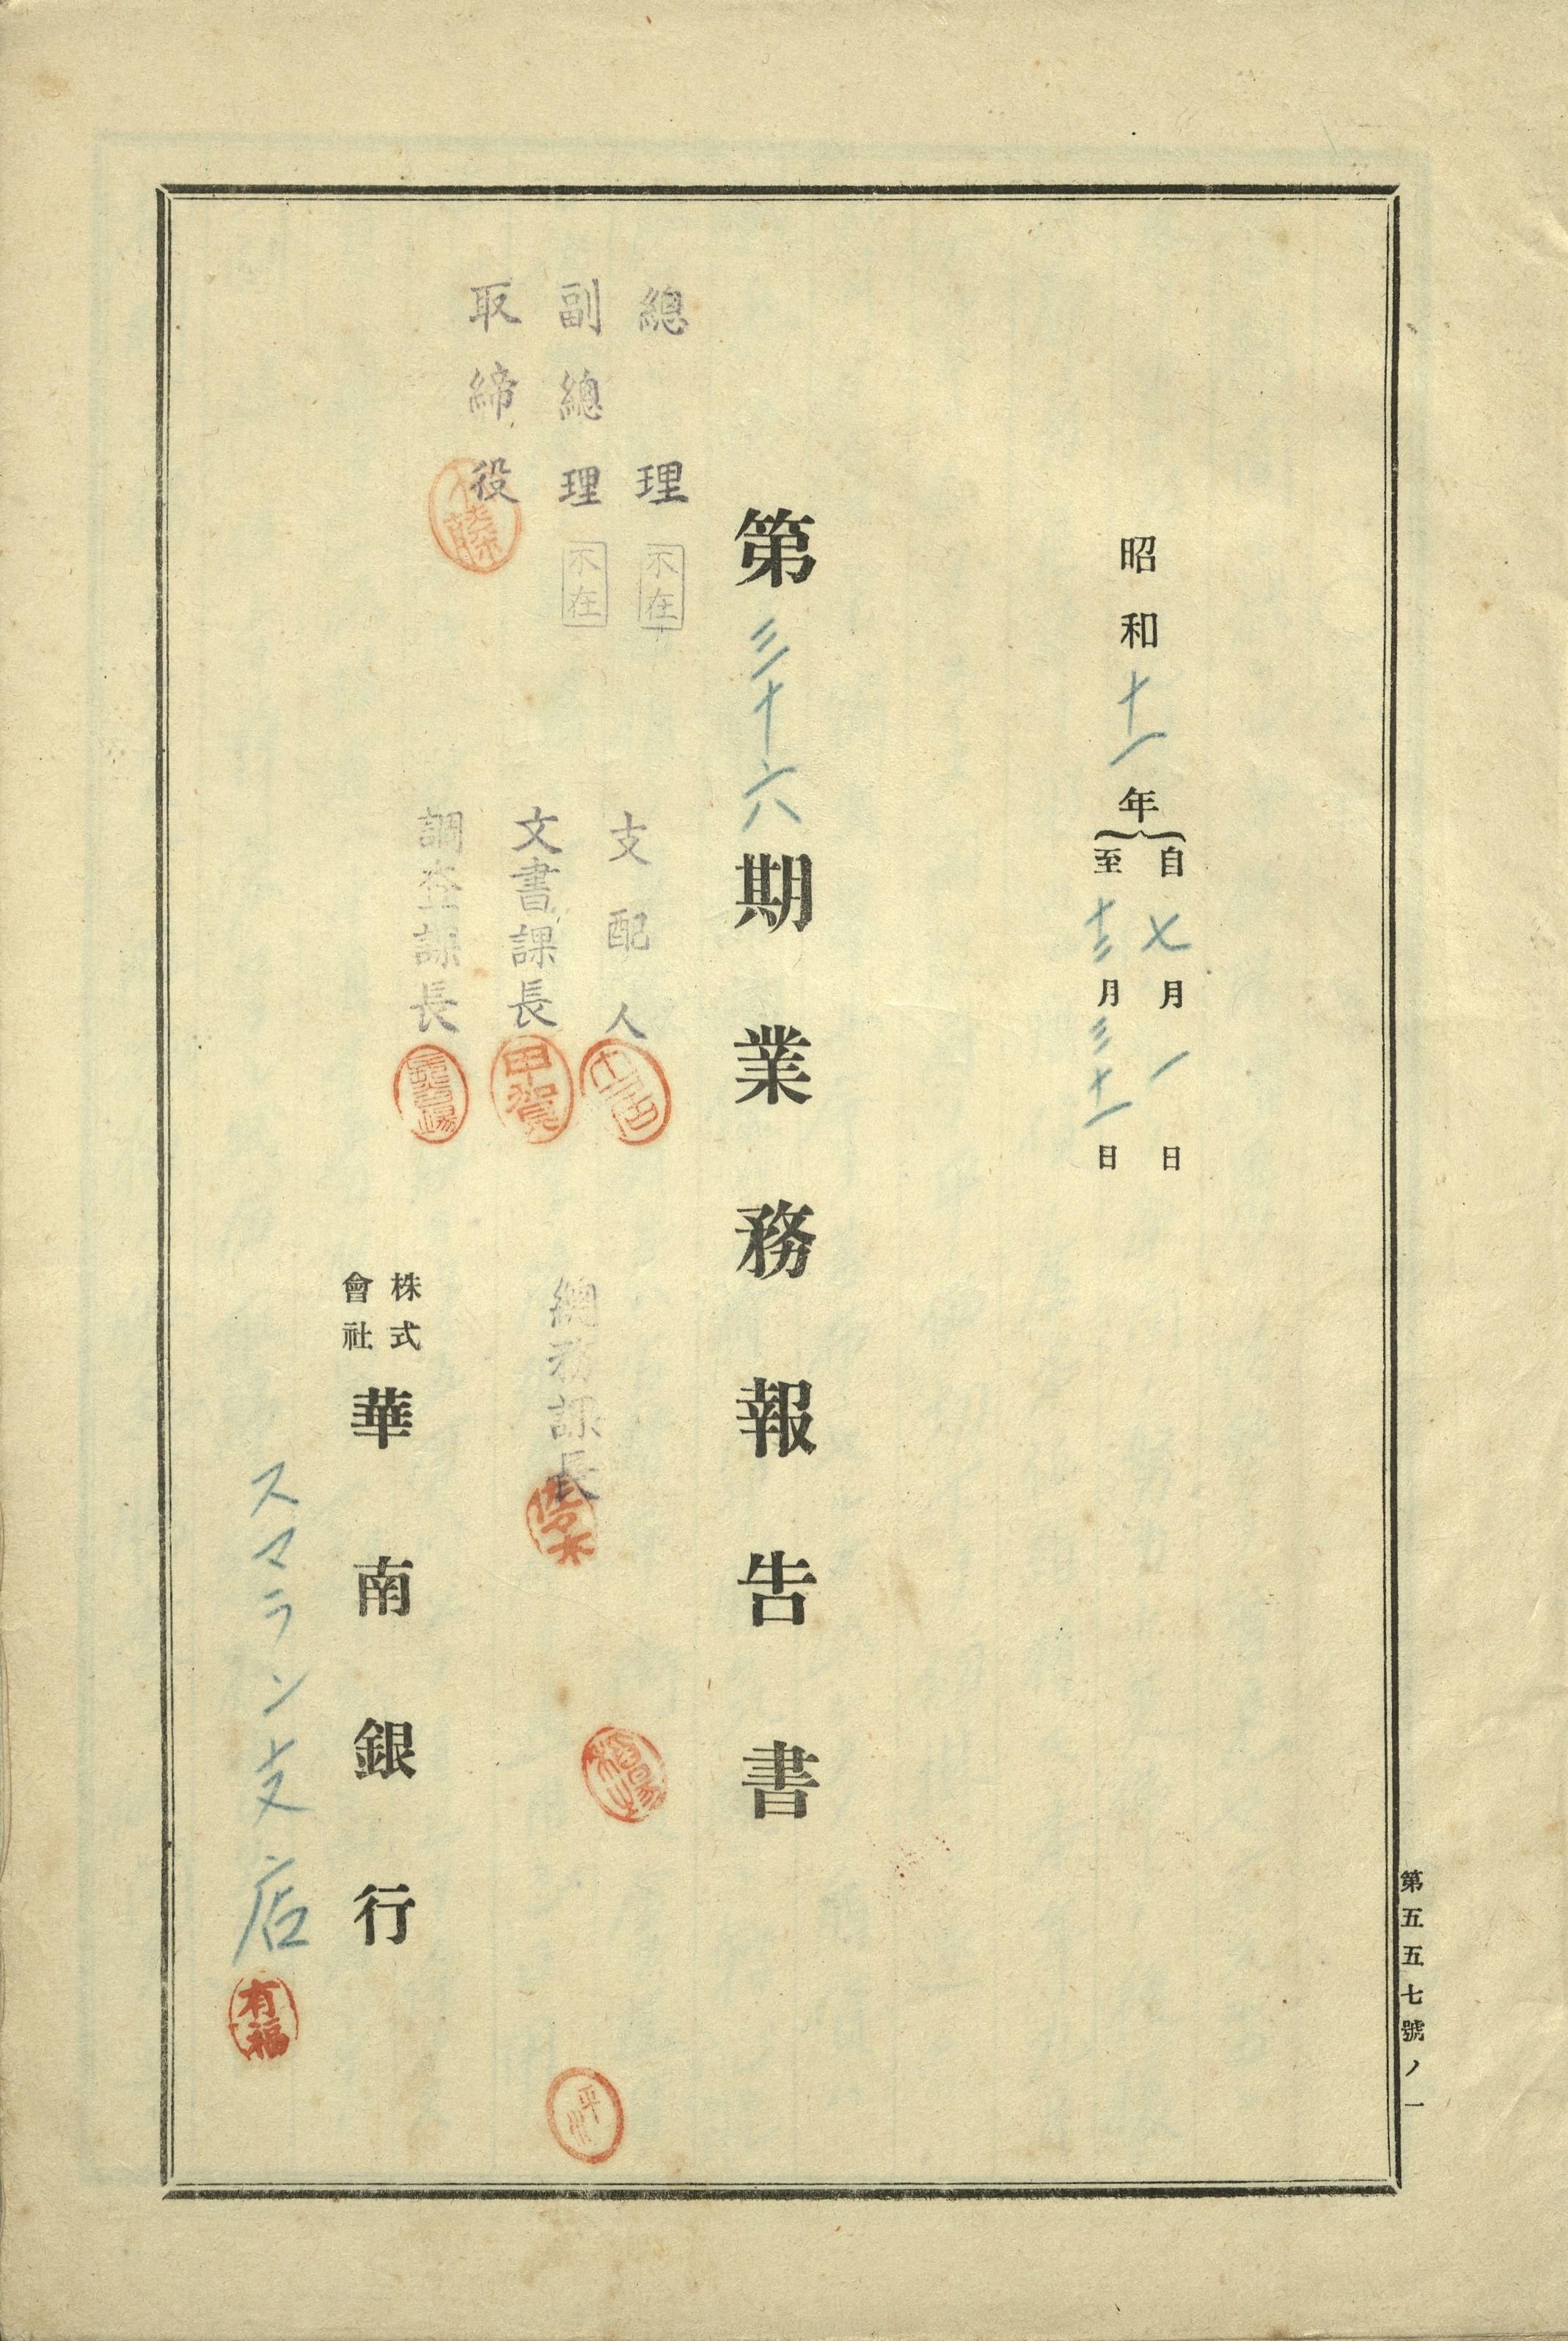 昭和十一年
自七月一日
至十二月三十一日
第三十六期業務報告書
總理 不在
副總理 不在
取締役
支配人
文書課長 甲賀
調査課長
總務課長 佐々木
株式會社 華南銀行
スマラン支店 有福
第五五七號ノ一